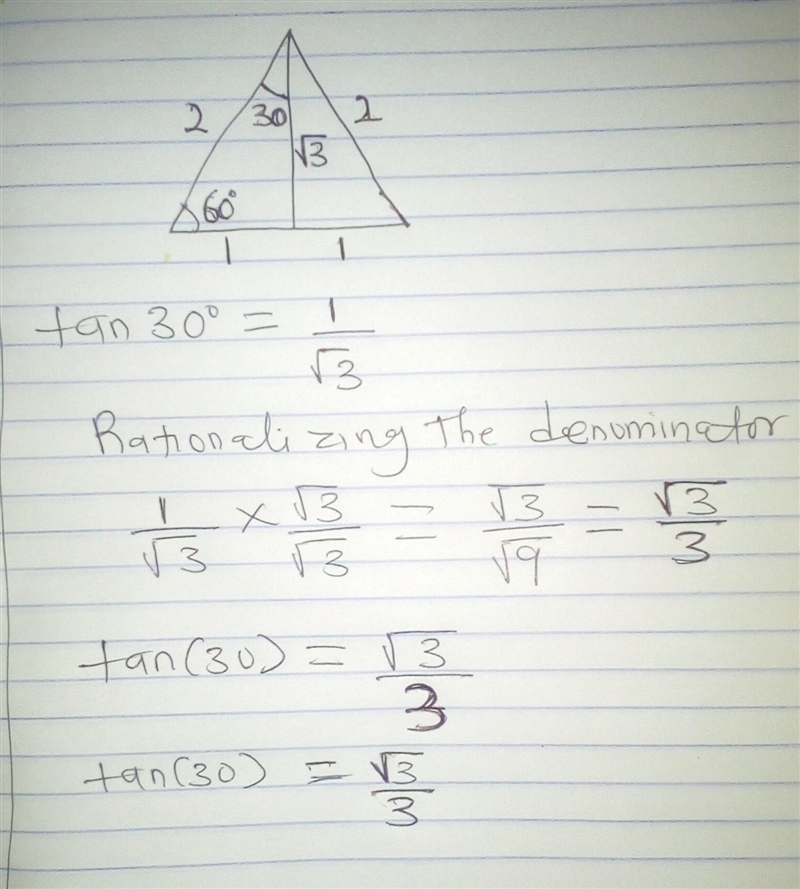 2 30 2
√3
60°
1 1
tan 30° = 1/√3
Rationalizing The denominator
1/√3 × √3/√3 = √3/√9 = √3/3
tan(30) = √3/3
tan(30) = √3/3